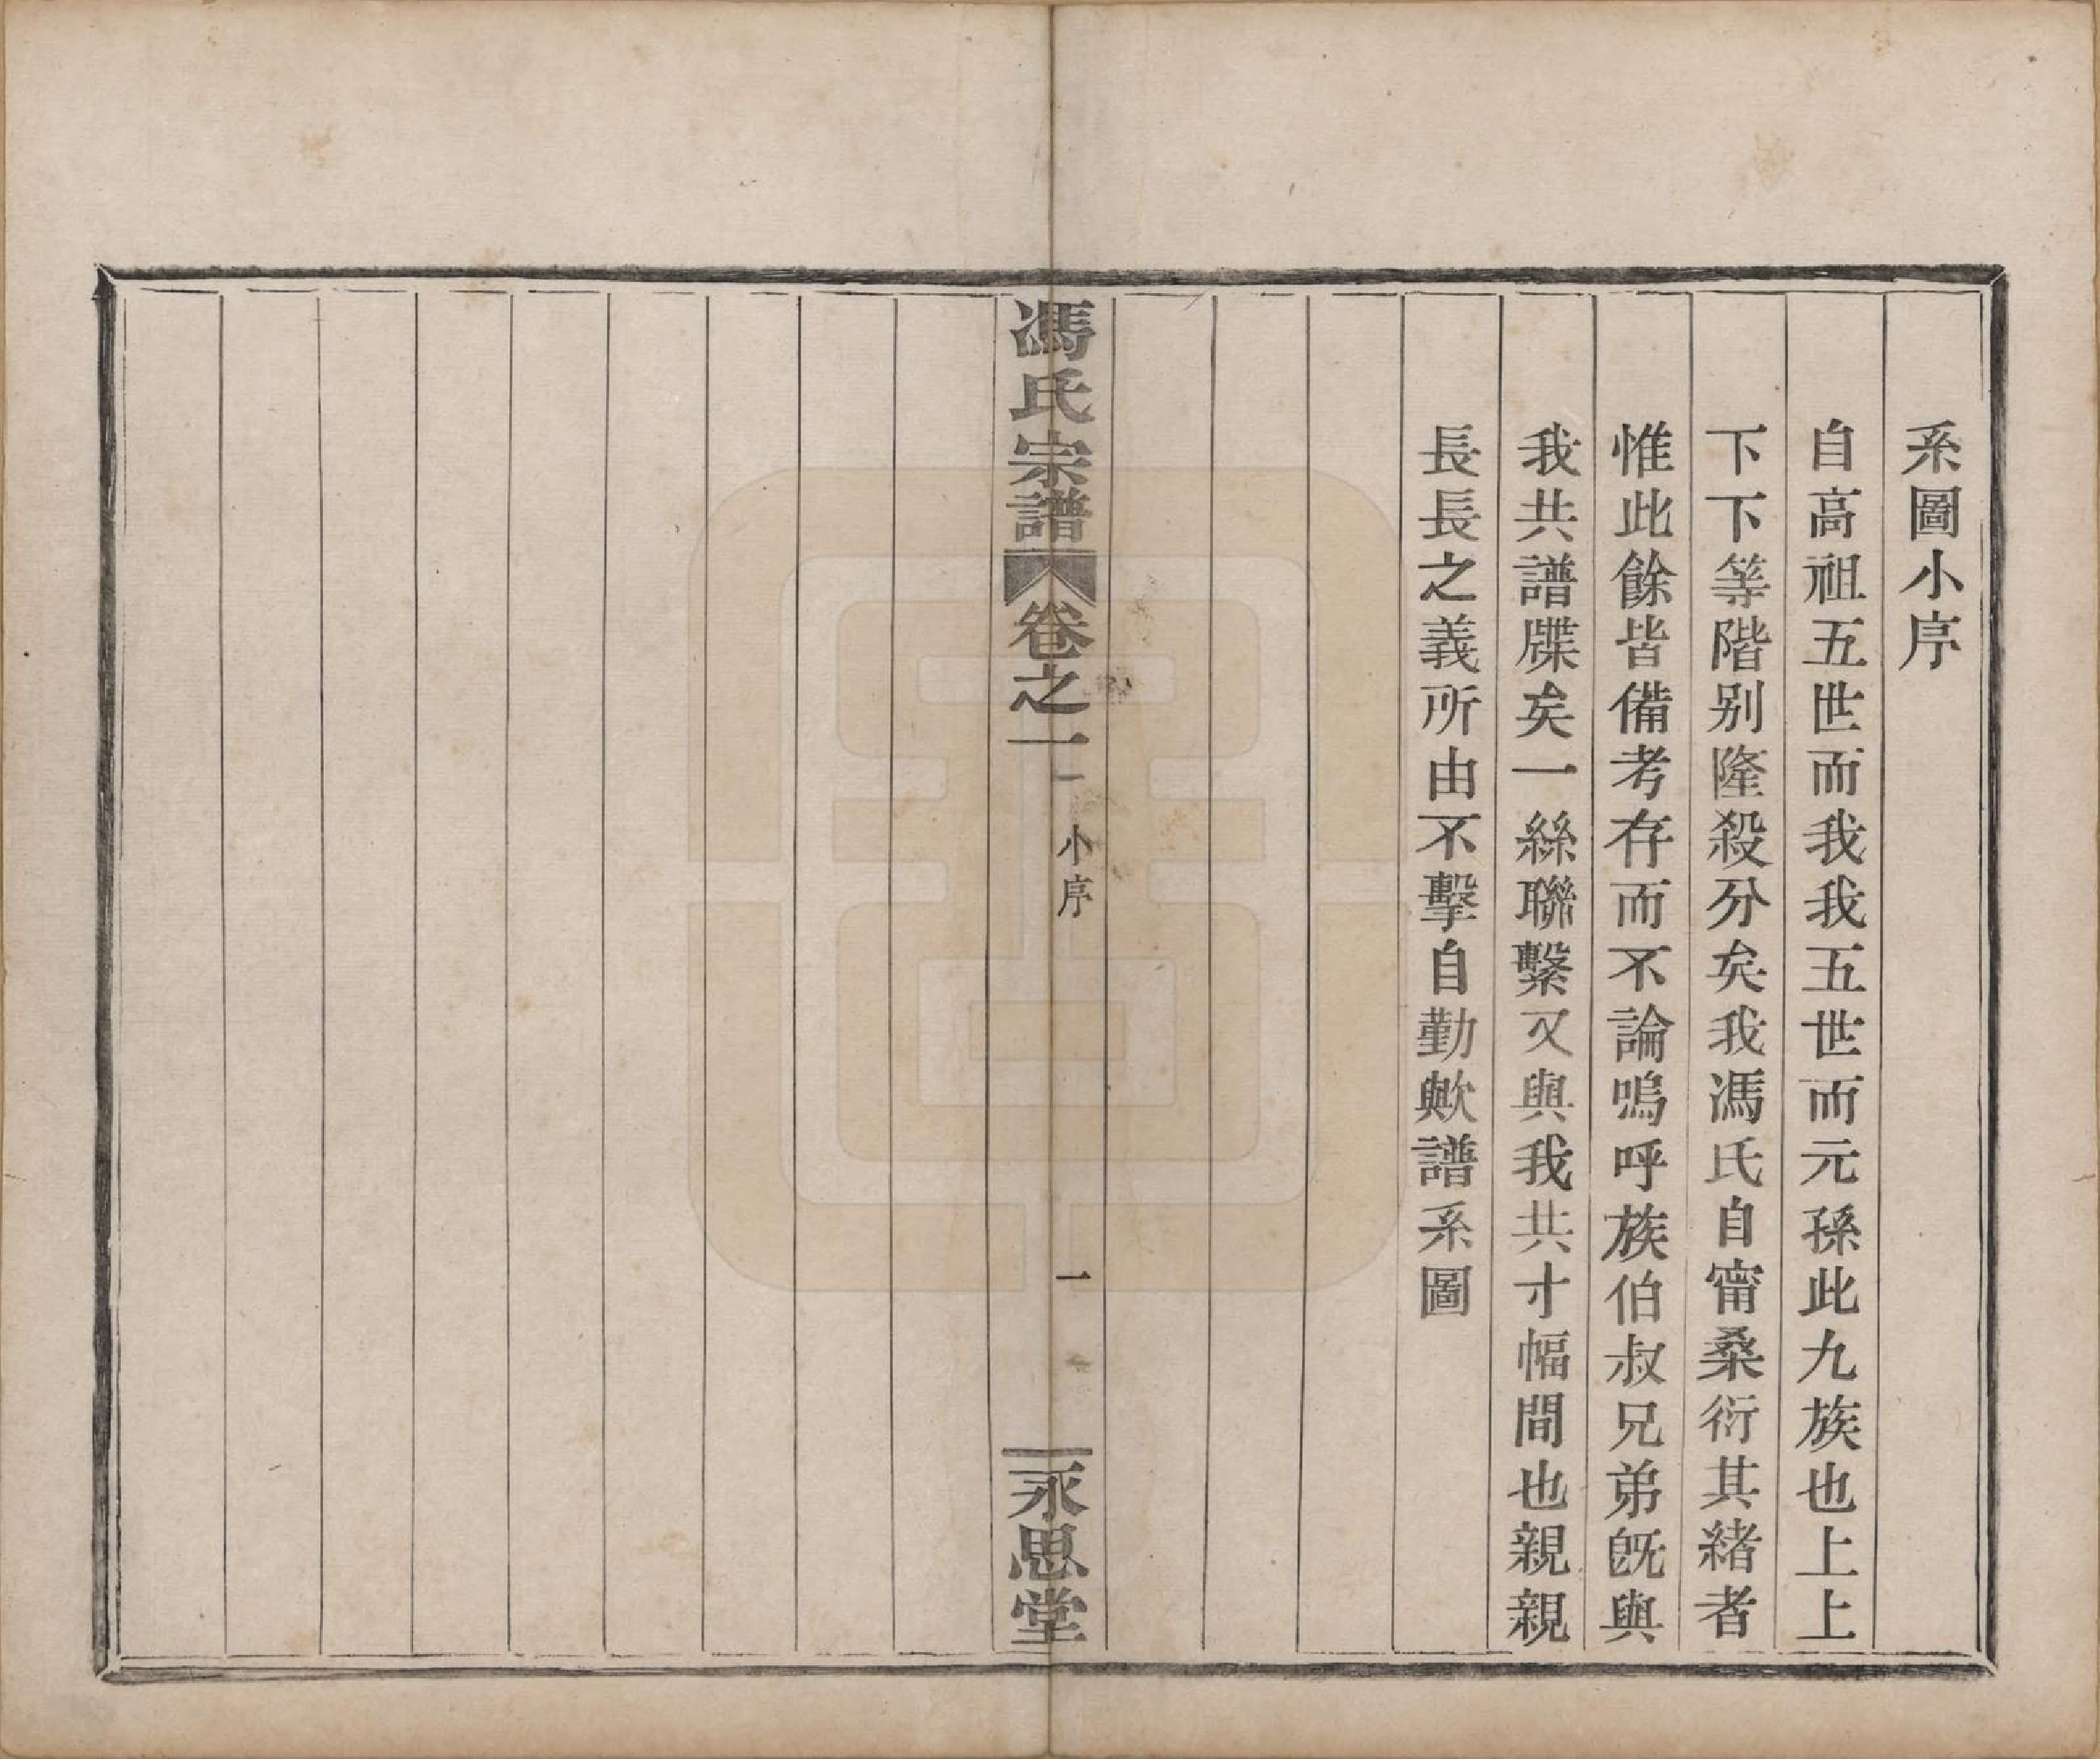 系圖小序
自高祖五世而我我五世而元孫此九族也上上
下下等階别隆殺分矣我馮氏自甯桑衍其緒者
惟此餘皆備考存而不論嗚呼族伯叔兄弟旣與
我共譜牒矣一絲聯繫又與我共寸幅間也親親
長長之義所由不擊自勤歟譜系圖
馮氏宗譜
卷之一一
小序
一
永思堂